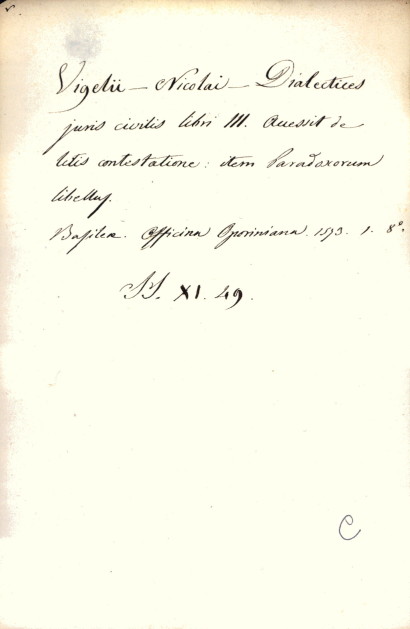 Vigelii — Nicolai — Dialectices
juris civilis libri III. Accessit de
litis contestatione: item Paradoxorum
libellus.
Basileæ. Officina Oporiniana. 1593. 1. 8°.
XI. 49.
C